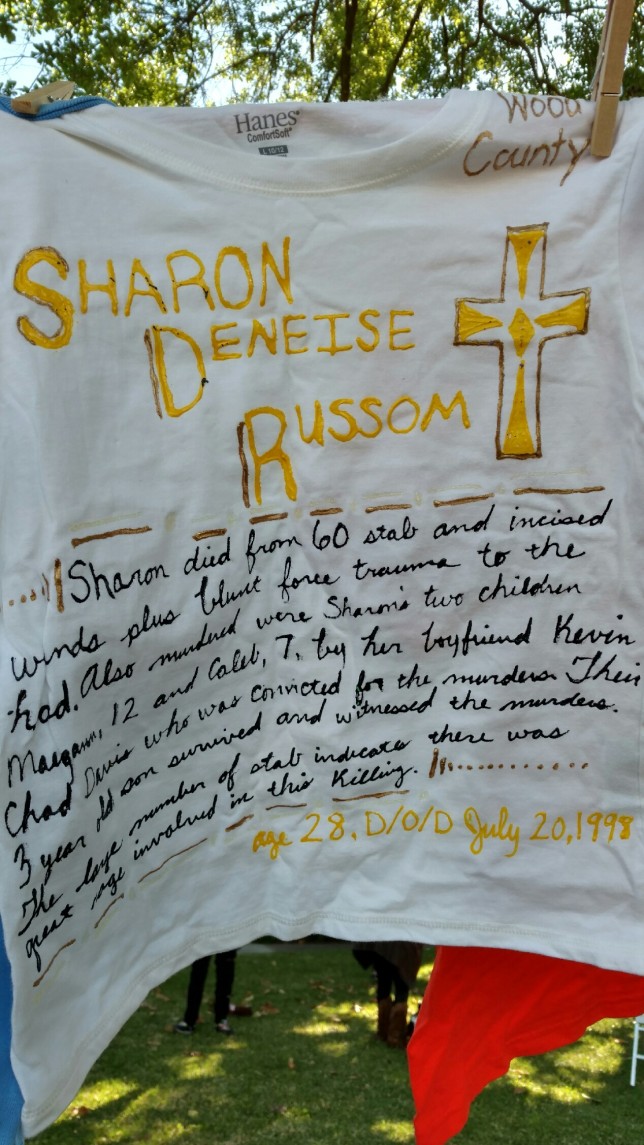 Hanes
ComfortSoft
L 10/12
Wood
County
SHARON
DENEISE
RUSSOM
Sharon died from 60 stab and incised
wnds plus blunt force trauma to the
had. Also murdered were Sharon's two children
Maegann, 12 and Caleb, 7, by her boyfriend Kevin
Chad Davis who was convicted for the murders. Their
3 year old son survived and witnessed the murders.
The large number of stab indicates there was
great rage involved in this Killing.
age 28. D/O/D July 20, 1998